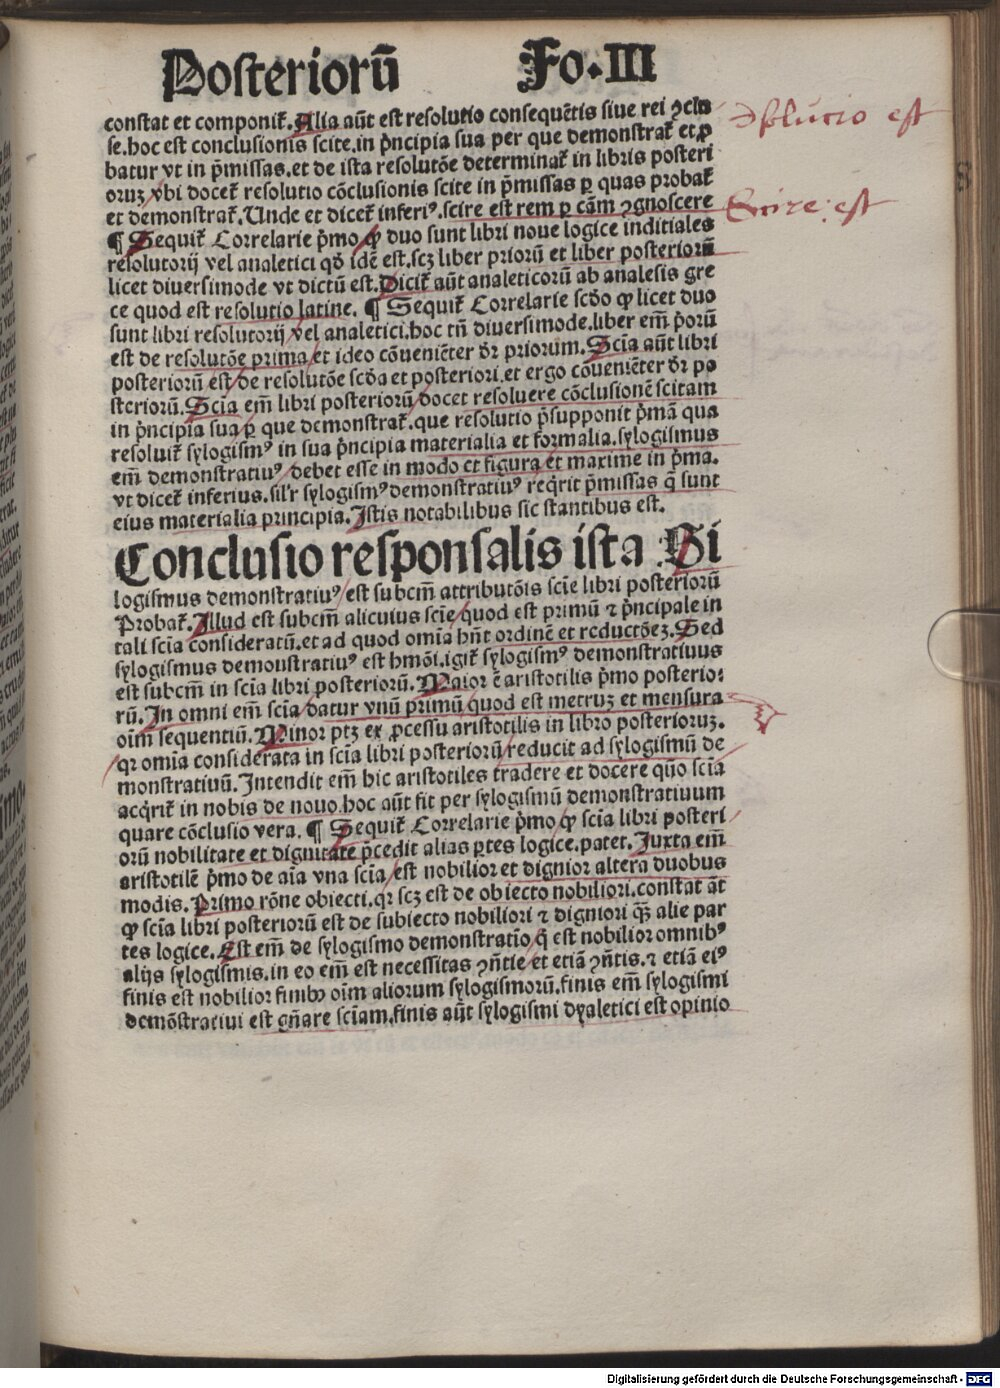 Posteriorū Fo. III
constat et componiť. Alia aūt est resolutio consequētis siue rei ↄclu
se. hoc est conclusionis scite. in p̄ncipia sua per que demonstrať et ꝓ
batur vt in p̄missas. et de ista resolutōe determinať in libris posteri
oruꝫ vbi doceť resolutio cōclusionis scite in p̄missas ꝑ quas probať
et demonstrať. Unde et diceť inferiꝰ. scire est rem ꝑ cām ↄgnoscere
¶ Sequiť Correlarie pͥmo ꝙ duo sunt libri noue logice inditiales
resolutorij vel analetici qď idē est. scꝫ liber priorū et liber posteriorū
licet diuersimode vt dictū est. Diciť aūt analeticorū ab analesis gre
ce quod est resolutio latine. ¶ Sequiť Correlarie scďo ꝙ licet duo
sunt libri resolutorij vel analetici. hoc tn̄ diuersimode. liber em̄ pͥorū
est de resolutōe prima et ideo cōueniēter dr̄ priorum. Scia aūt libri
posteriorū est de resolutōe scďa et posteriori. et ergo cōueniēter dr̄ po
steriorū. Scia em̄ libri posteriorū docet resoluere cōclusionē scitam
in p̄ncipia sua ꝑ que demonstrať. que resolutio p̄supponit pͥmā qua
resoluiť sylogismꝰ in sua p̄ncipia materialia et formalia. sylogismus
em̄ demonstratiuꝰ debet esse in modo et figura et maxime in pͥma.
vt diceť inferius. sil'r sylogismꝰ demonstratiuꝰ reqͥrit p̄missas q̄ sunt
eius materialia principia. Istis notabilibus sic stantibus est.
Conclusio responsalis ista Si
logismus demonstratiuꝰ est subcm̄ attributōis scīe libri posteriorū
Probať. Illud est subcm̄ alicuius scīe quod est primū ⁊ p̄ncipale in
tali scīa consideratū. et ad quod omīa hn̄t ordinē et reductōeꝫ. Sed
sylogismus demonstratiuꝰ est hmōi. igiť sylogismꝰ demonstratiuus
est subcm̄ in scīa libri posteriorū. Maior ē aristotilis pͥmo posterio:
rū. In omni em̄ scīa datur vnū primū quod est metruꝫ et mensura
oīm sequentiū. Minor ptꝫ ex ꝓcessu aristotilis in libro posterioruꝫ.
qꝛ omīa considerata in scīa libri posteriorū reducit ad sylogismū de
monstratiuū. Intendit em̄ hic aristotiles tradere et docere quō scīa
acqͥriť in nobis de nouo. hoc aūt fit per sylogismū demonstratiuum
quare cōclusio vera. ¶ Sequiť Correlarie pͥmo ꝙ scīa libri posteri
orū nobilitate et dignitate p̄cedit alias ꝑtes logice. patet. Juxta em̄
aristotilē pͥmo de aīa vna scīa est nobilior et dignior altera duobus
modis. Primo rōne obiecti. qꝛ scꝫ est de obiecto nobiliori. constat āt
ꝙ scīa libri posteriorū est de subiecto nobiliori ⁊ digniori qꝫ̄ alie par
tes logice. Est em̄ de sylogismo demonstratīo q̄ est nobilior omnibꝰ
alijs sylogismis. in eo em̄ est necessitas ↄn̄tie et etiā ↄn̄tis. ⁊ etiā eiꝰ
finis est nobilior finibꝰ oīm aliorum sylogismorū. finis em̄ sylogismi
demōstratiui est gn̄are scīam. finis aūt sylogismi dyaletici est opinio
ↄsolucio est
Scire: est
Digitalisierung gefördert durch die Deutsche Forschungsgemeinschaft - DFG